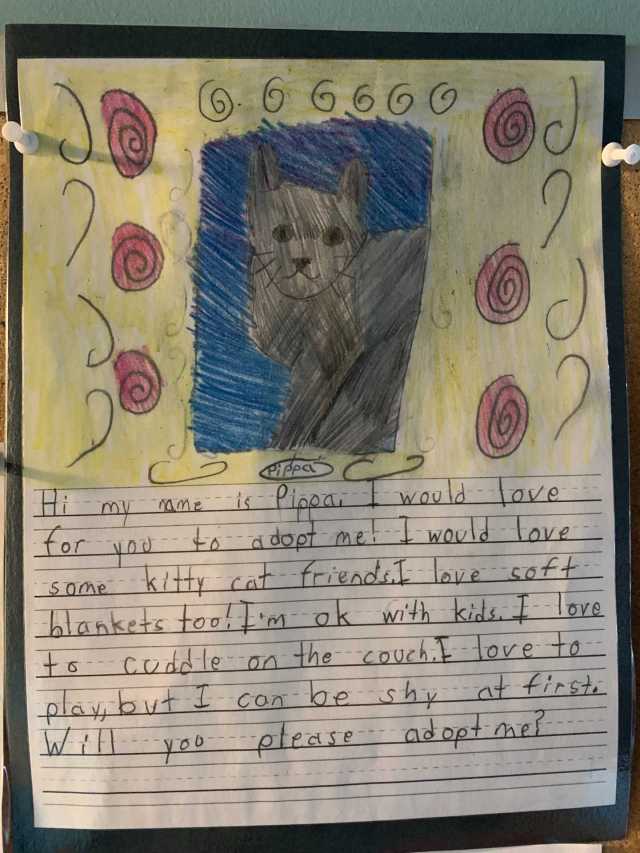 Pippa
Hi my name is Pippa. I would love
for you to adopt me! I would love
some kitty cat friends. I love soft
blankets too! I'm ok with kids. I love
to cuddle on the couch. I love to
play, but I can be shy at first.
Will you please adopt me?